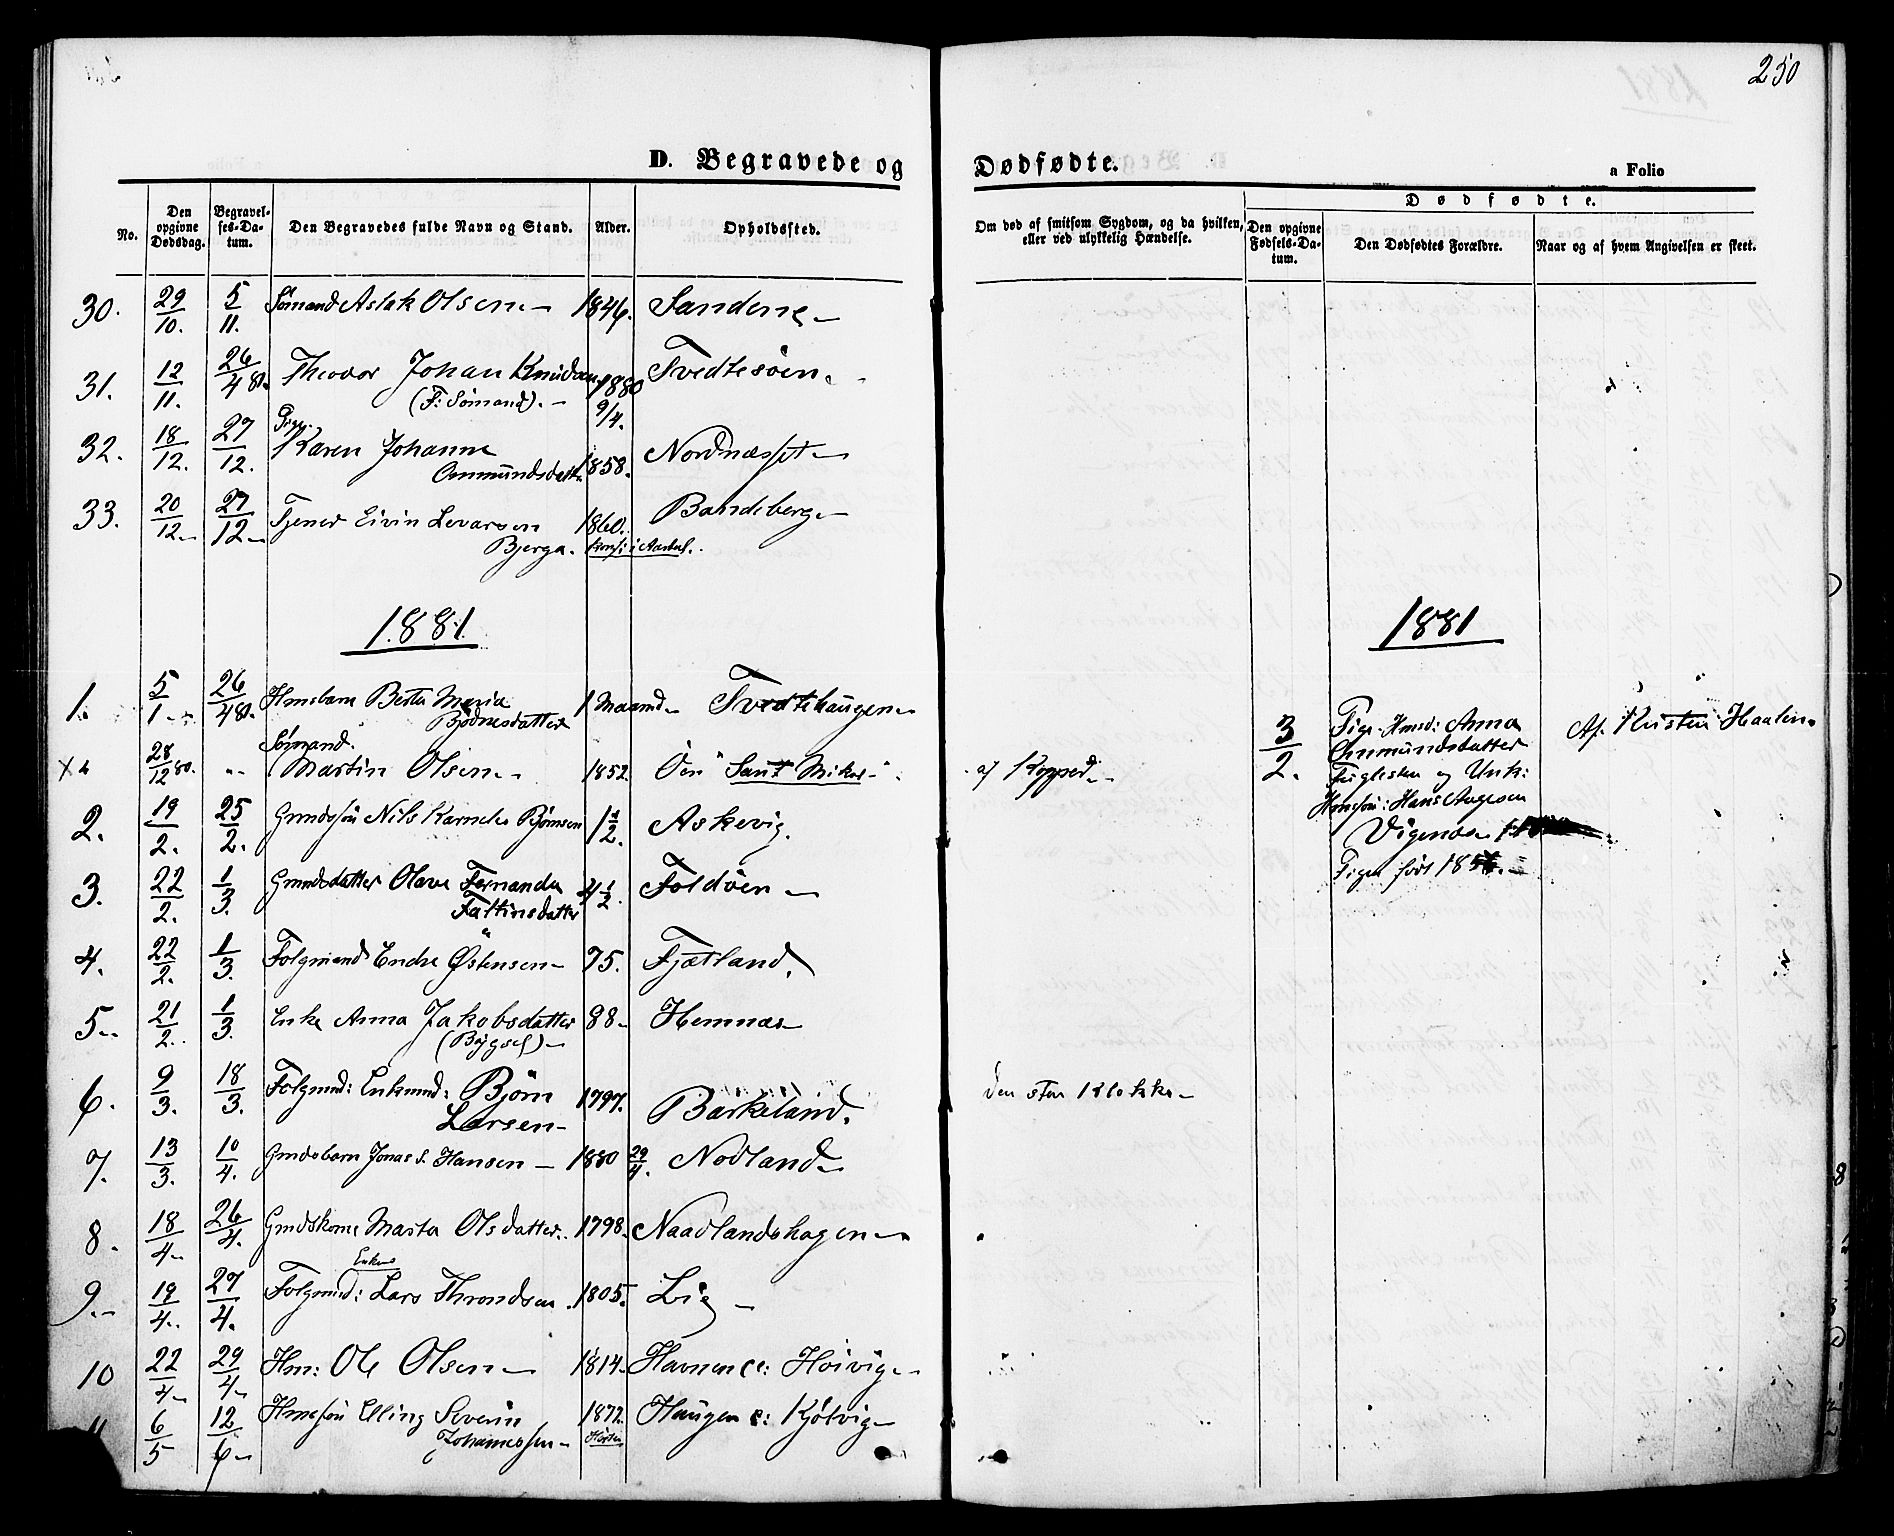 250
D. Begravede og Dødfødte.
a Folio
No.
Den opgivne Dødsdag.
Begravelses-Datum.
Den Begravedes fulde Navn og Stand.
Alder.
Opholdssted.
Om død af smitsom Sygdom, og da hvilken, eller ved ulykkelig Hændelse.
Dødfødte.
Den opgivne Fødsels-Datum.
Den Dødfødtes Forældre.
Naar og af hvem Angivelsen er skeet.
30. 29/10. 5/11. Sømand Aslak Olsen 1846. Sandene
31. 12/11. 26/4 81. Theodor Johan Knudsen 1880 Tvedtesøen
(F: Sømand). 9/4.
Pige
32. 18/12. 27/12. Karen Johanne 1858. Nordnæsset
Ommundsdatt.
33. 20/12 27/12 Tjener Eivin Levarsen 1860. Bandeberg
Bjerga.
1881.
1881
1. 5/1 26/4 81. Hmsbarn Berta Maria 1 Maaned Tvedtehaugen
Bjødnesdatter
Sømand.
x 28/12 80. Martin Olsen 1852. Öen Sant Mikol
af Kopper
3/2. Pige Hmsd: Anna
Ommundsdatter
Fuglesten og Unk:
Hmssøn: Hans Aagesen
Vigenæs
Pigen født
Af Kristen Haalen
2. 19/2. 25/2. Gmdssøn Nils Kornelius Bjørnsen 1 1/2. Askevig.
3. 22/2. 1/3. Gmdsdatter Olave Fernanda 4 1/2. Foldöen
Tattinsdatter
4. 22/2. 1/3. Folgmand Endre Østensen 75. Fjætland.
5. 21/2. 1/3. Enke Anna Jakobsdatter 88 Hemnæs
(Bøgsel)
6. 9/3. 18/3. Folgmnd: Enkemnd: Bjørn 1797. Barkeland.
Larsen
den sten Klokke
7. 13/3. 10/4. Gmdsbarn Jonas S. Hansen 1880 29/4. Nodland
8. 18/4 26/4. Gmdskone Marta Olsdatter 1798. Naadlandshagen
Enkem
9. 19/4. 27/4. Folgmnd: Lars Throndsen 1805. Lig
10 22/4 29/4 Hm: Ole Olsen 1814. Havnen e: Hoivig
11 6/5 12/6 Hmssøn Elling Severin 1872. Haugen e: Kjölvig
Johannessen